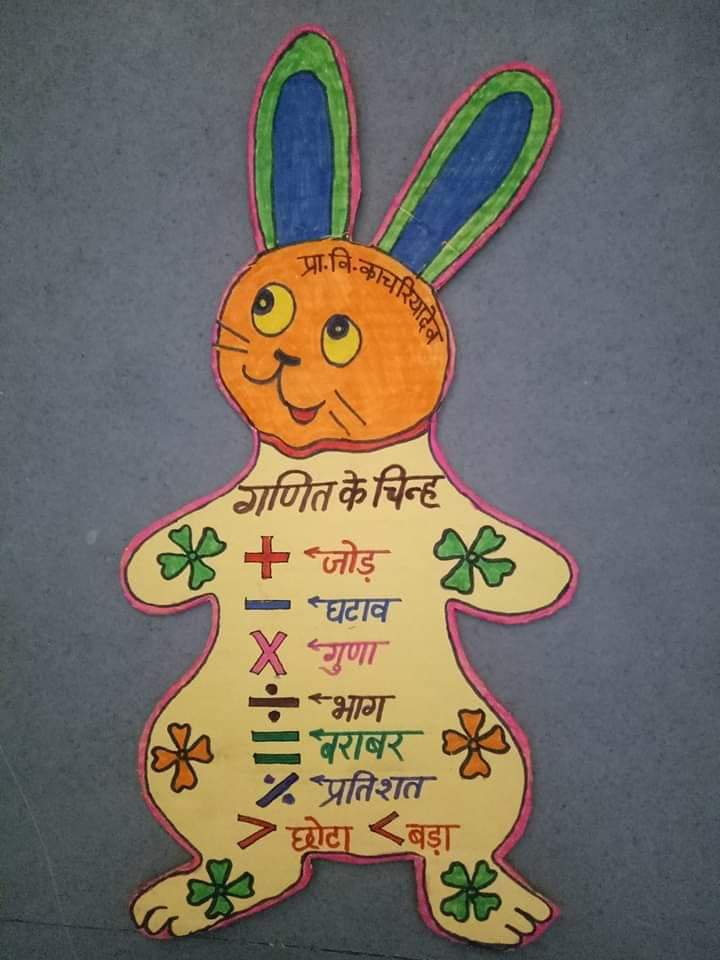 प्रा.वि.काचरियादेव
गणित के चिन्ह
+ ←जोड़
− ←घटाव
× ←गुणा
÷ ←भाग
= ←बराबर
٪ ←प्रतिशत
> छोटा < बड़ा